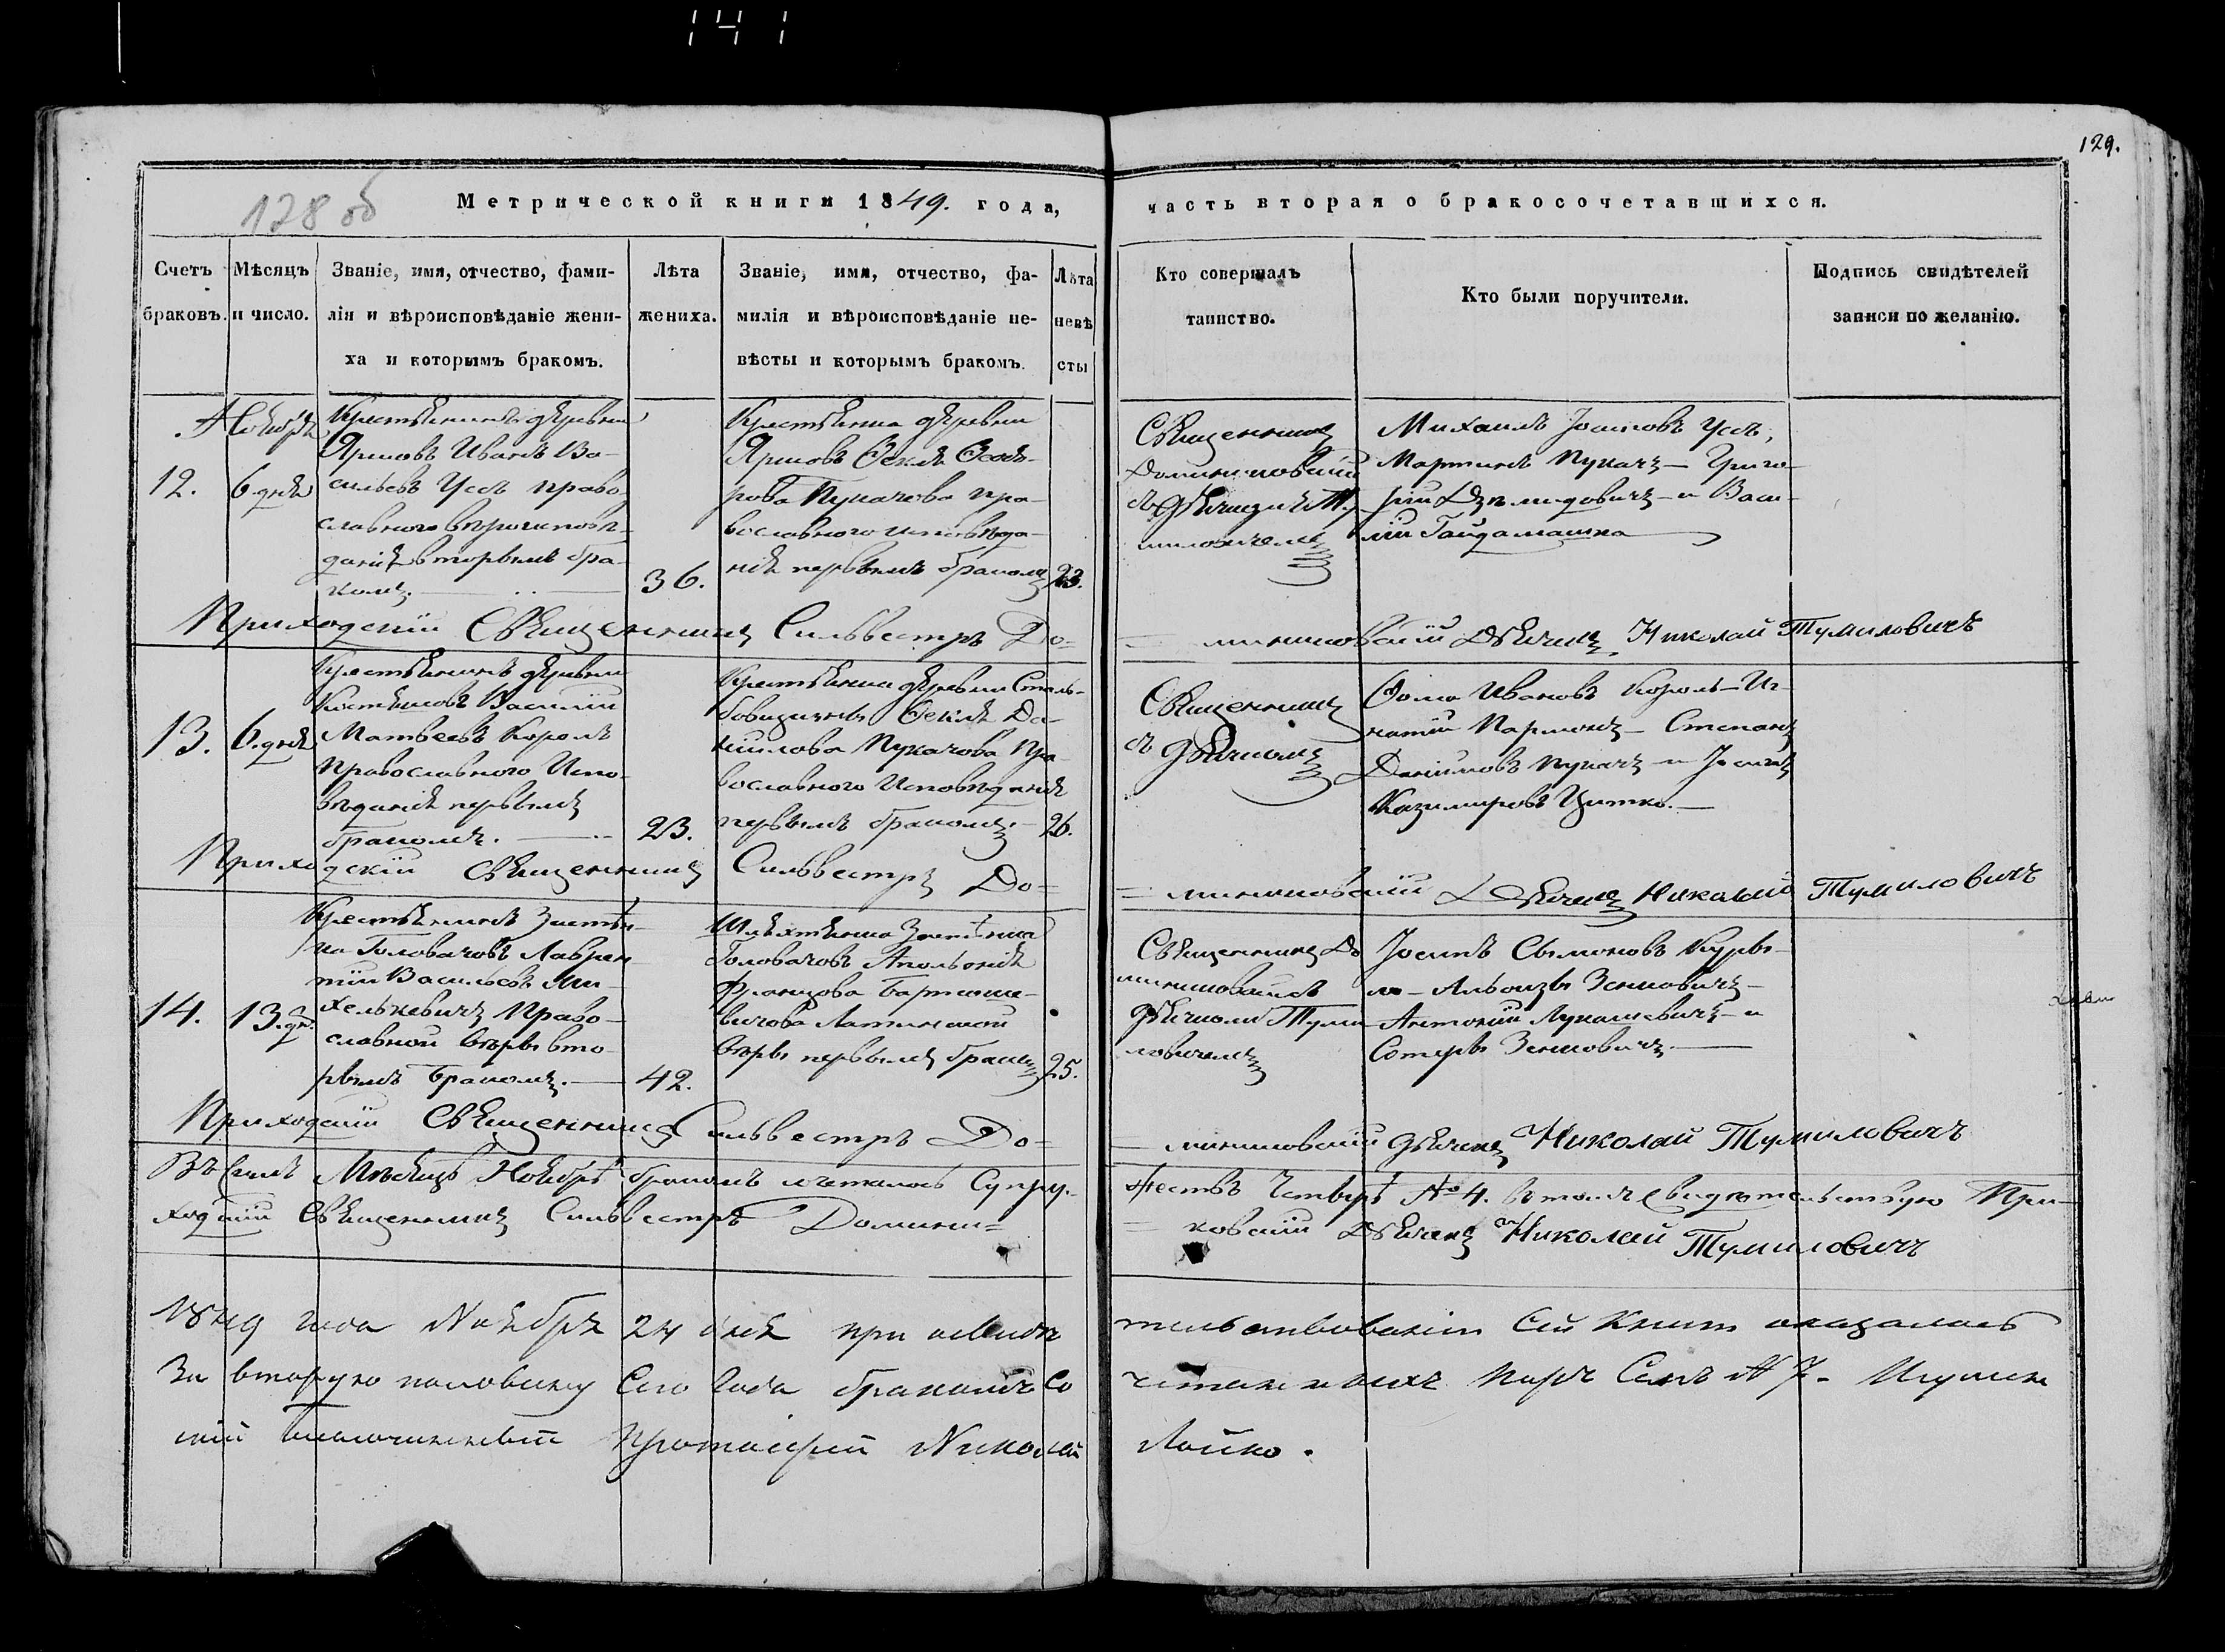 141
129.
128 об
Метрической книги 1849. года, часть вторая о бракосочетавшихся.
Счетъ браковъ.
Мѣсяцъ и число.
Званіе, имя, отчество, фами-
лія и вѣроисповѣданіе жени-
ха и которымъ бракомъ.
Лѣта
жениха.
Званіе, имя, отчество, фа-
милія и вѣроисповѣданіе не-
вѣсты и которымъ бракомъ.
Лѣта
невѣ
сты
Кто совершалъ
таинство.
Кто были поручители.
Подпись свидѣтелей
записи по желанію.
Ноября
12.
6. дня
Крестьянинъ деревни
Иванъ Ва-
сильевъ Усъ право-
славнаго вѣроисповѣ-
данія вторымъ бра-
комъ.
36.
Крестьянка деревни
Ѳекла Ѳеодо-
рова Пукачова пра-
вославнаго исповѣда-
нія первымъ бракомъ
23.
Священникъ
Доминиковскій
съ дьячкомъ Ту-
миловичемъ
Михаилъ Іосифовъ Усъ,
Мартинъ Пукачъ — Григо-
рій — и Васи-
лій Гайдамашка
Приходскій Священникъ Сильвестръ До=
= миниковскій Дьячекъ Николай Тумиловичъ
13.
6. дня
Крестьянинъ деревни
Василій
Матвеевъ Король
Православнаго Испо-
вѣданія первымъ
бракомъ.
23.
Крестьянка деревни Столь-
бовщизны Ѳекла Да-
ніилова Пукачова Пра-
вославнаго Исповѣданія
первымъ бракомъ.
26.
Священникъ
съ дьячкомъ
Ѳома Ивановъ Король — Иг-
натій Пармонъ — Степанъ
Даніиловъ Пукачъ — и Іосифъ
Казимировъ
Приходскій Священникъ Сильвестръ До=
= миниковскій Дьячекъ Николай Тумиловичъ
14.
13. дн.
Крестьянинъ Застѣн-
ка Головачовъ Лаврен-
тій Васильевъ Ми-
хелькевичъ Право-
славной вѣры вто-
рымъ бракомъ.
42.
Шляхтянка Застѣнка
Головачовъ Апольонія
Францова Бартоше-
вичова Латинской
вѣры первымъ бракомъ
25.
Священникъ До
миниковскій съ
дьячкомъ Туми-
ловичемъ
Іосифъ Сымоновъ
— Альоизы Зенковичъ —
Антоній Лукашевичъ — и
Сотеры Зенковичъ.
Приходскій Священникъ Сильвестръ До=
= миниковскій дьячекъ Николай Тумиловичъ
Въ семъ Мѣсяцѣ Ноябрѣ бракомъ сочеталось Супру-
жествъ Четыре № 4. въ томъ свидѣтельствую При-
ходскій Священникъ Сильвестръ Домини=
= ковскій Дьячекъ Николай Тумиловичъ
1849 года Ноября 24 дня при освидѣ
тельствованіи сей Книги оказалось
За вторую половину сего года бракомъ со
четанныхъ паръ Семь № 7. Игумен
скій Благочинный Протоіерей Николай
Лойко.